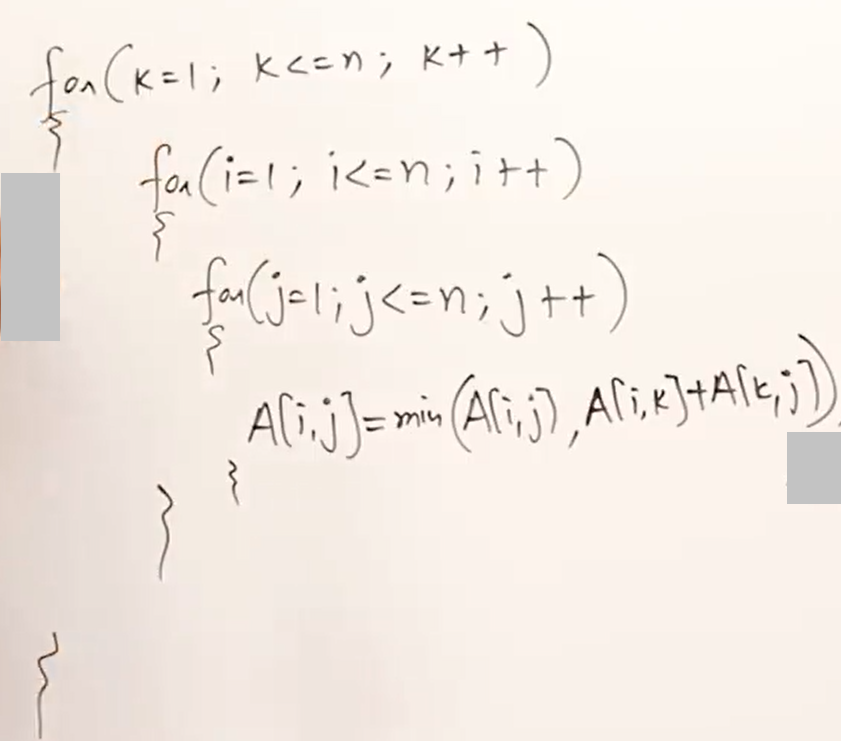 for(k=1; k<=n; k++)
{
for(i=1; i<=n; i++)
{
for(j=1; j<=n; j++)
{
A[i,j]=min(A[i,j], A[i,k]+A[k,j])
}
}
}